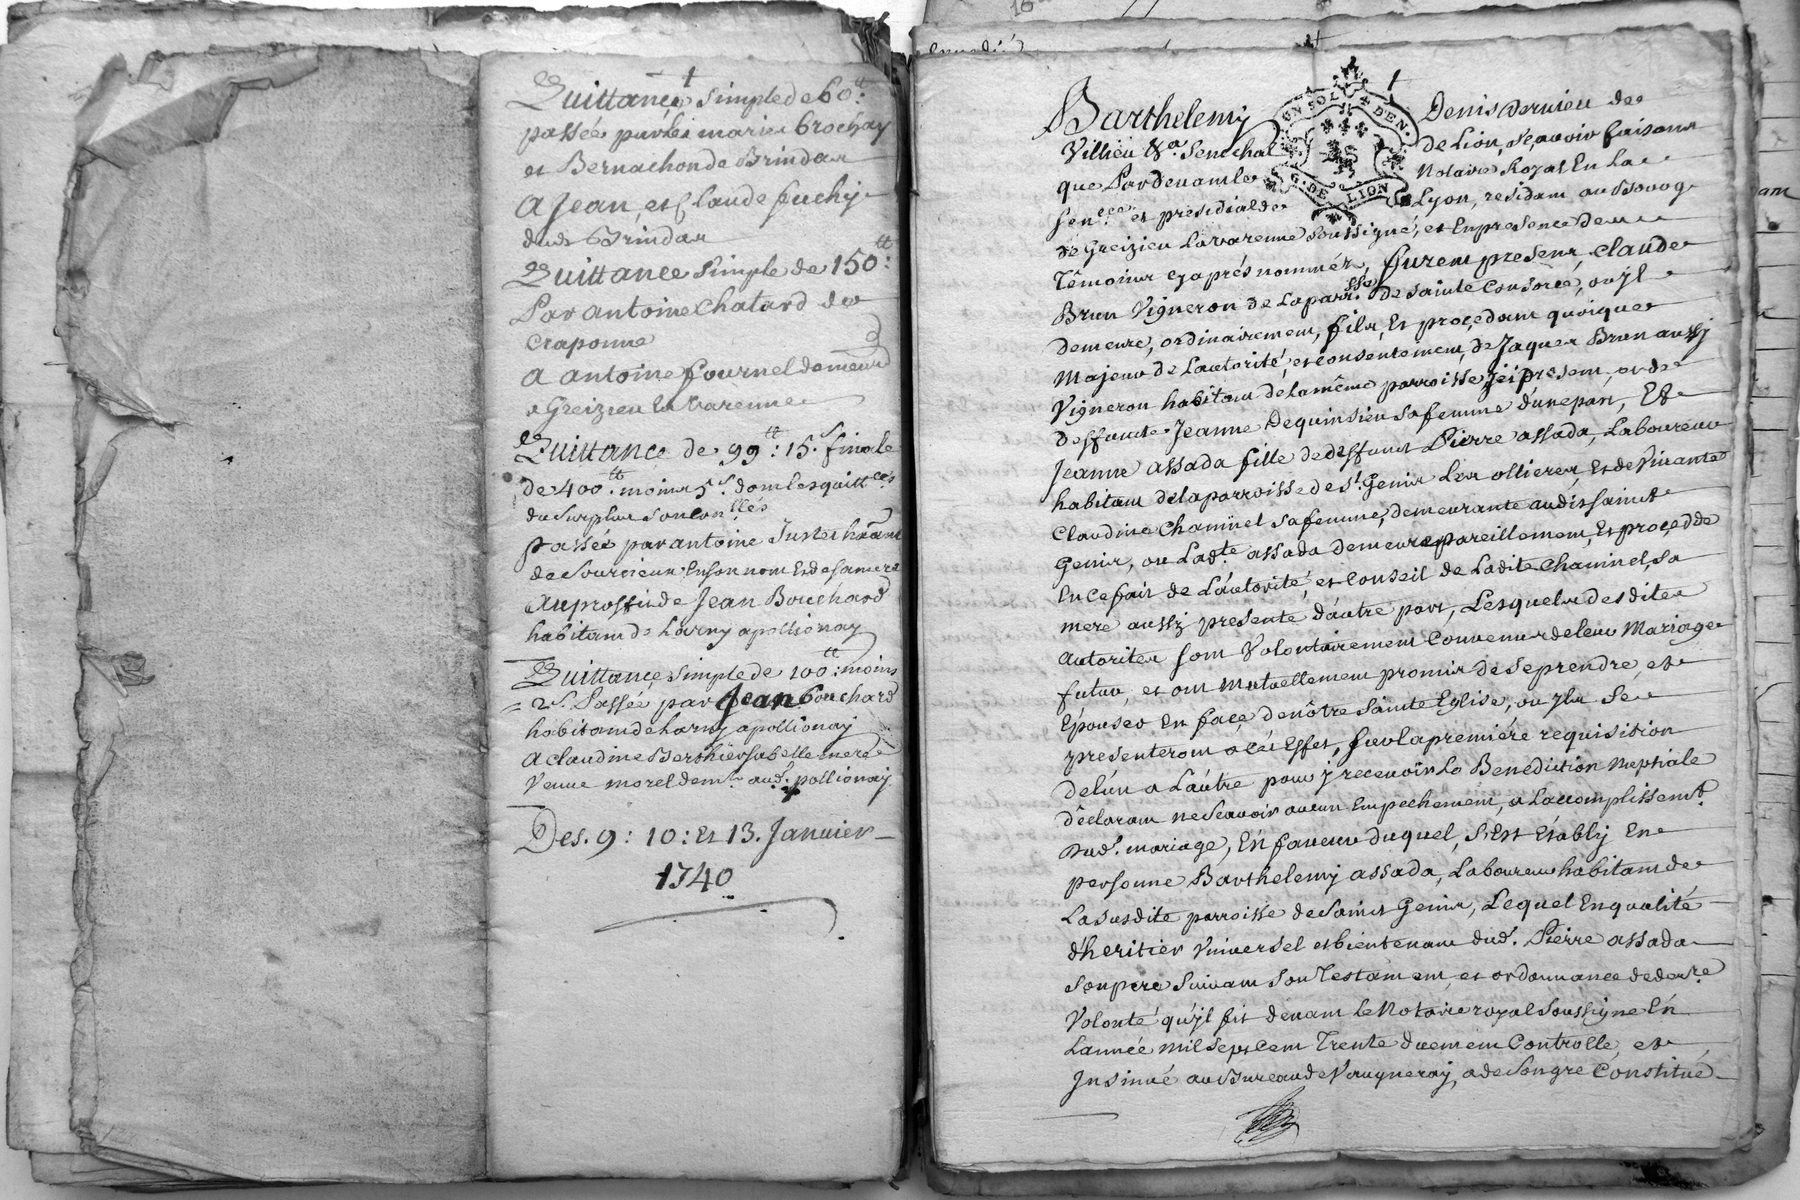 Quittance simple de 60.tt
passée par les mariés Brochay
et Bernachon de Brindas
A Jean, et Claude fuchy
dud. Brindas
Quittance simple de 150.tt
Par antoine Chatard de
Craponne
a antoine fournel demeur.
a Greizieu La Varenne
Quittance de 99.tt: 15.s finale
de 400.tt moins 5.s dont les quitt.ces
du Surplus Sont
Passée par antoine Juste habitant
de Sourcieux En son nom Et de sa mere
Au proffit de Jean Bouchard
habitant de Larny apollionay
Quittance simple de 100.tt: moins
2.s Passée par Jean Bouchard
habitant de Larny apollionay
A claudine Berthier sa belle mere
Veuve morel dem.te aud. pollionay
Des. 9: 10: Et 13. Janvier
1740
Barthelemy Denis Dervieu de
UN SOL DEN.
G. DE LION
Villieu &.a Senechal de Lion, Scavoir faisons
que Pardevant le Notaire Royal En la
Sen.ccée et presidial de Lyon, residant au Bourg
de Greizieu Lavarenne soussigné, et En presence de
Témoins cy aprés nommés, furent present Claude
Brun Vigneron de la parr.sse de Sainte Consorce, ou jl
demeure, ordinairement, fils, Et procedant quoique
Majeur de L'autorité, et consentement, de Jaques Brun aussy
Vigneron habitant de la même parroisse jci present, et de
deffuncte Jeanne Dequinsieu sa femme d'une part, Et
Jeanne assada fille de deffunt Pierre assada, Laboureur
habitant de la parroisse de S.t Genis Les ollieres Et de Vivante
Claudine Chaminel sa femme, demeurante audit saint
Genis, ou Lad.te assada demeure pareillement, Et procede
En ce fait de L'autorité, et Conseil de Ladite Chaminel, sa
mere aussy presente d'autre part, Lesquels desdites
autorites sont Volontairement Convenus de leur Mariage
futur, et ont Mutuellement promis de se prendre, et
Epouser En façe de nôtre Sainte Eglise, ou jls Se
presenteront a cét Effet, sur la premiére requisition
de l'un a L'autre pour y recevoir La Benediction Nuptiale
déclarant ne Scavoir aucun Empechement, a L'accomplissem.t
dud. mariage, En faveur duquel, S'Est Etably En
personne Barthelemy assada, Laboureur habitant de
La susdite parroisse de Saint Genis, Lequel En qualité
d'heritier Universel et bientenant dud. Pierre assada
son pere Suivant Son Testament, et ordonnance de der.re
Volonté qu'jl fit devant Le Notaire royal soussigné En
L'année mil Sept cent Trente Controllé, et
Jnsinué au Bureau de Vaugneray, a de Son gré Constitué